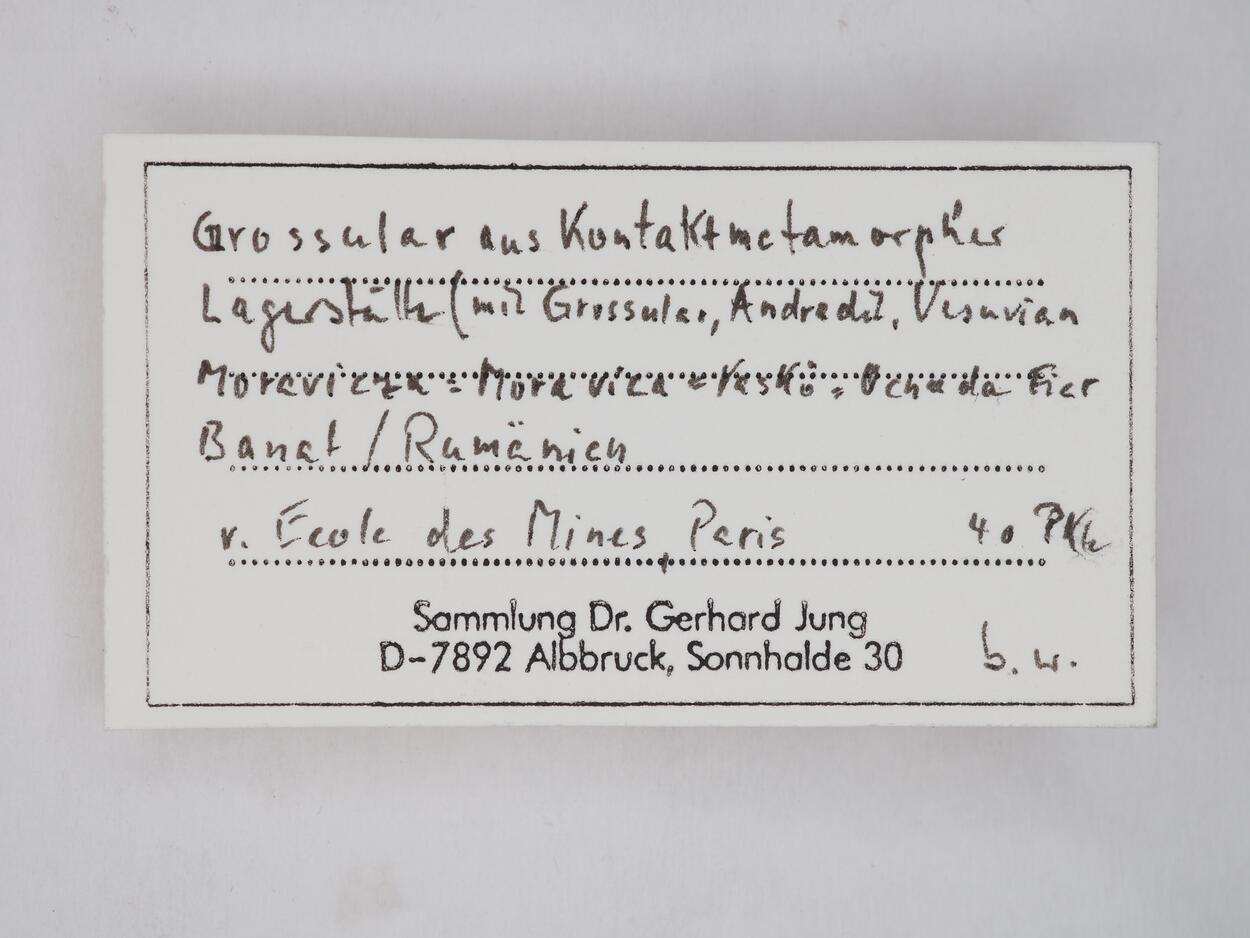 Grossular aus Kontaktmetamorpher
Lagerstätte (mit Grossular, Andradit, Vesuvian
Moravicza = Moravica = Vaskö = Ocna da Fier
Banat / Rumänien
v. École des Mines Paris 40
Sammlung Dr. Gerhard Jung
D-7892 Albbruck, Sonnhalde 30 b. w.